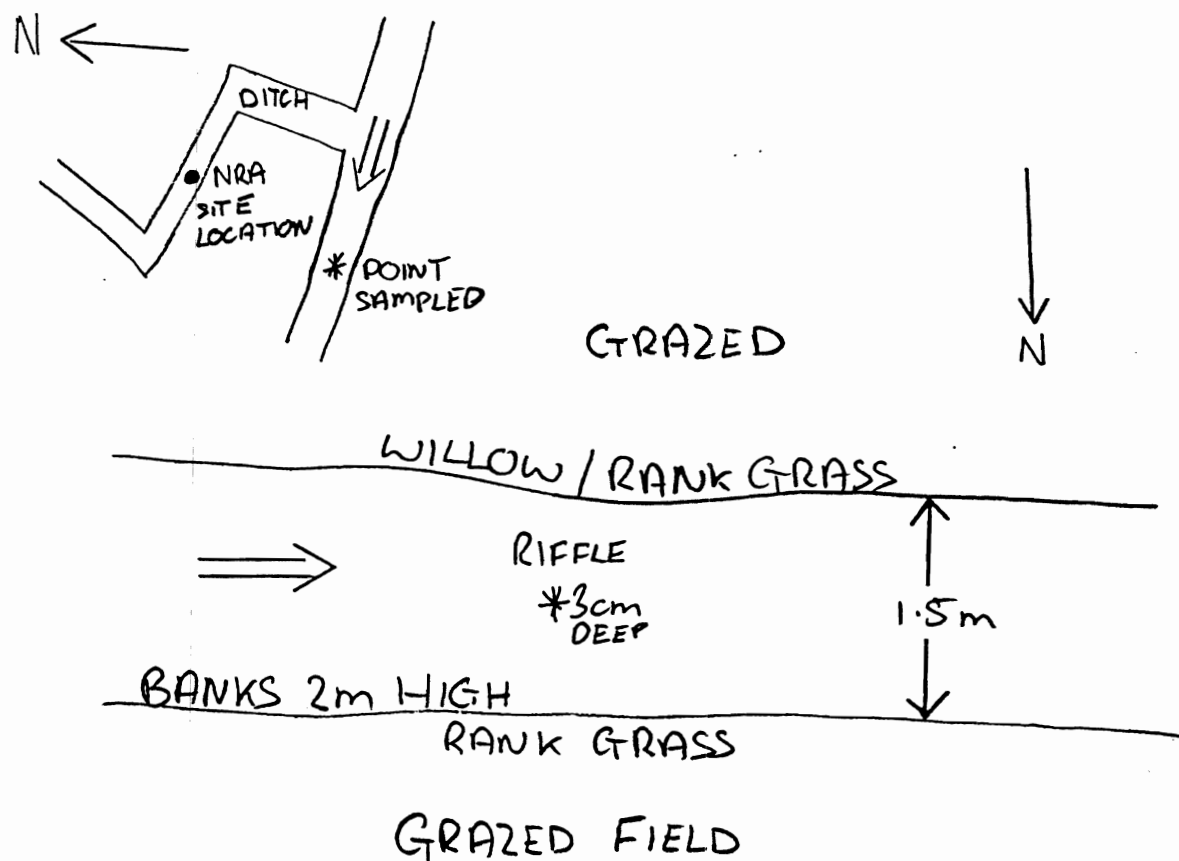 N
DITCH
NRA
SITE
LOCATION
* POINT
SAMPLED
GRAZED
N
WILLOW / RANK GRASS
RIFFLE
*3cm
DEEP
1.5m
BANKS 2m HIGH
RANK GRASS
GRAZED FIELD